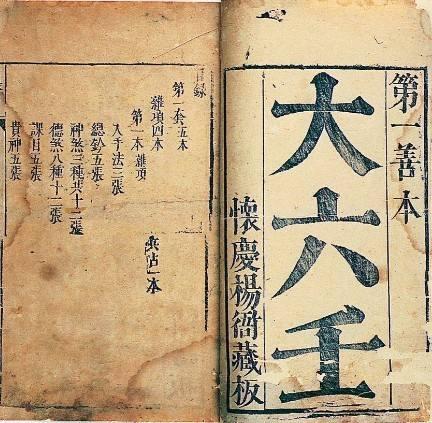 第一善本
大六壬
懷慶楊衙藏板
目錄
第一套五本
雜項四本
兵占一本
第一本 雜項
入手法三張
總鈐五張
神煞三種共十二張
德煞八種十二張
課目五張
貴神五張